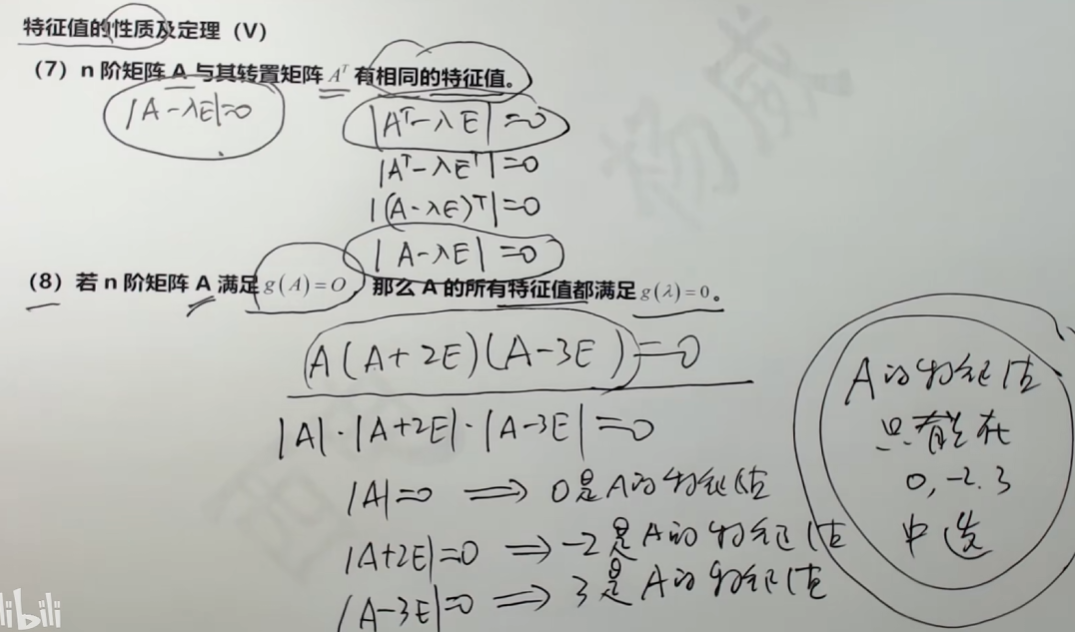 特征值的性质及定理（V）
（7）n 阶矩阵 A 与其转置矩阵 Aᵀ 有相同的特征值。
|A-λE|=0
|Aᵀ-λE|=0
|Aᵀ-λEᵀ|=0
|(A-λE)ᵀ|=0
|A-λE|=0
（8）若 n 阶矩阵 A 满足 g(A)=O，那么 A 的所有特征值都满足 g(λ)=0。
A(A+2E)(A-3E)=0
|A|·|A+2E|·|A-3E|=0
|A|=0 ⟹ 0是A的特征值
|A+2E|=0 ⟹ -2是A的特征值
|A-3E|=0 ⟹ 3是A的特征值
A的特征值
只能在
0,-2.3
中选
杨威
libili